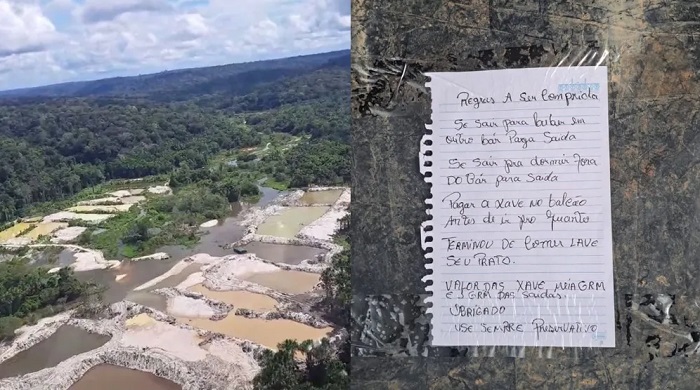 Regras A Ser Comprida
Se Sair para beber em
outro bar Paga Saida
Se Sair pra dormir fora
DO Bar paga Saida
Pagar a xave no balcão
Antes de ir pro quanto
TERMINOU DE Comer LAVE
SEU PRATO.
VALOR DAS XAVE MEIA GRM
E 5 GRM DAS SAIDAS
OBRIGADO
USE SEMPRE PRESERVATIVO